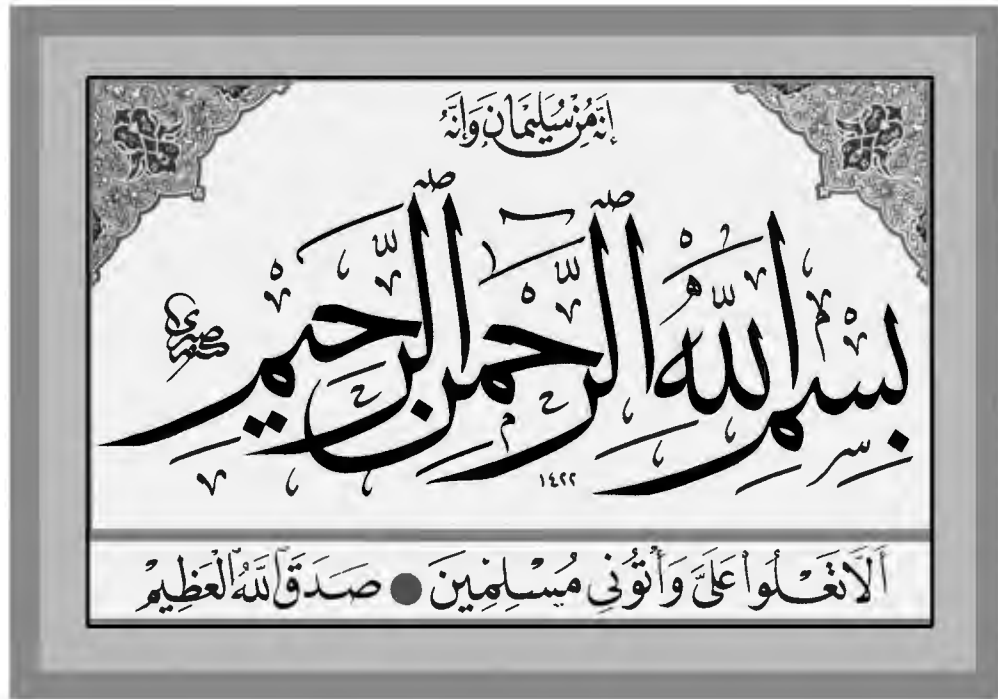 إِنَّهُ مِنْ سُلَيْمَانَ وَإِنَّهُ
بِسْمِ اللَّهِ الرَّحْمَٰنِ الرَّحِيمِ
١٤٢٢
أَلَّا تَعْلُوا عَلَيَّ وَأْتُونِي مُسْلِمِينَ ● صَدَقَ اللَّهُ الْعَظِيمُ